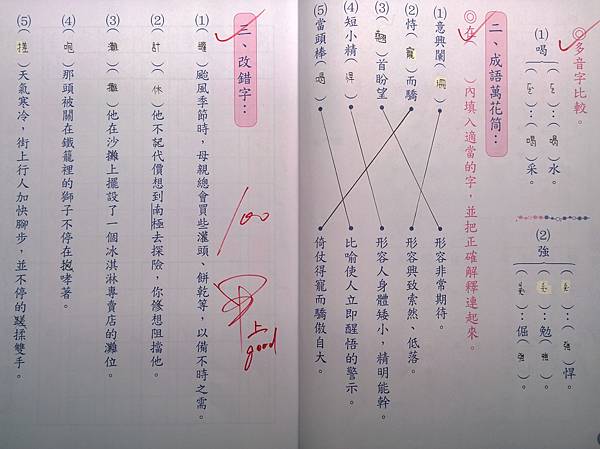 ◎多音字比較。
(1)喝
( ):(喝)水。
( ):(喝)采。
(2)強
( ):(強)悍。
( ):勉(強)。
( ):倔(強)。
◎在( )內填入適當的字，並把正確解釋連起來。
二、成語萬花筒：
(1)意興闌(珊) 形容非常期待。
(2)恃(寵)而驕 形容興致索然、低落。
(3)(翹)首盼望 形容人身體矮小，精明能幹。
(4)短小精(悍) 比喻使人立即醒悟的警示。
(5)當頭棒(喝) 倚仗得寵而驕傲自大。
100
甲上
good
三、改錯字：
(1)(罐)颱風季節時，母親總會買些灌頭、餅乾等，以備不時之需。
(2)(計)(休)他不記代價想到南極去探險，你修想阻擋他。
(3)(灘)(攤)他在沙攤上擺設了一個冰淇淋專賣店的灘位。
(4)(咆)那頭被關在鐵籠裡的獅子不停在抱哮著。
(5)(搓)天氣寒冷，街上行人加快腳步，並不停的蹉揉雙手。